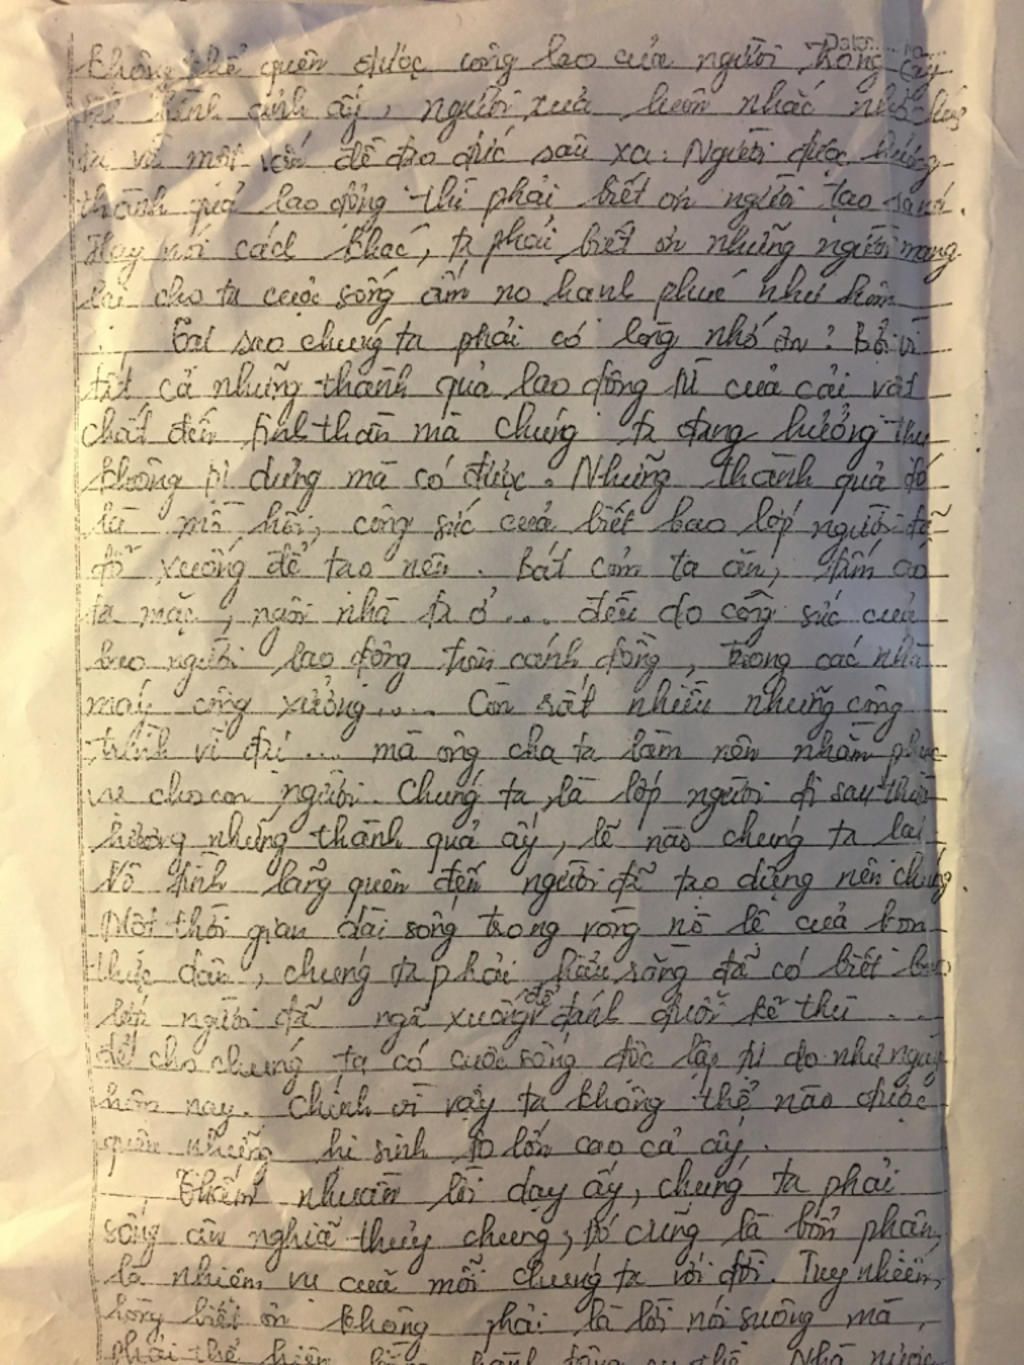 không thể quên được công lao của người trồng cây
hình ảnh ấy, người xưa luôn nhắc nhở
ta về một vấn đề đạo đức sâu xa: Người được hưởng
thành quả lao động thì phải biết ơn người tạo ra nó.
Hay nói cách khác, ta phải biết ơn những người mang
lại cho ta cuộc sống ấm no hạnh phúc như hôm
Tại sao chúng ta phải có lòng nhớ ơn? Bởi vì
tất cả những thành quả lao động từ của cải vật
chất đến tinh thần mà chúng ta đang hưởng thụ
không tự dưng mà có được. Những thành quả đó
là mồ hôi, công sức của biết bao lớp người đã
đổ xuống để tạo nên. Bát cơm ta ăn, tấm áo
ta mặc, ngôi nhà ta ở... đều do công sức của
bao người lao động trên cánh đồng, trong các nhà
máy công xưởng.... Còn rất nhiều những công
trình vĩ đại... mà ông cha ta làm nên nhằm phục
vụ cho con người. Chúng ta, là lớp người đi sau thừa
hưởng những thành quả ấy, lẽ nào chúng ta lại
Vô tình lãng quên đến người đã tạo dựng nên chúng.
Một thời gian dài sống trong vòng nô lệ của bọn
thực dân, chúng ta phải hiểu rằng đã có biết bao
lớp người đã ngã xuống để đánh đuổi kẻ thù ...
để cho chúng ta có cuộc sống độc lập tự do như ngày
hôm nay. Chính vì vậy ta không thể nào được
quên những hi sinh to lớn cao cả ấy.
Thấm nhuần lời dạy ấy, chúng ta phải
sống ân nghĩa thủy chung, đó cũng là bổn phận,
là nhiệm vụ của mỗi chúng ta với đời. Tuy nhiên,
lòng biết ơn không phải là lời nói suông mà
phải thể hiện bằng hành động cụ thể. Nhà nước